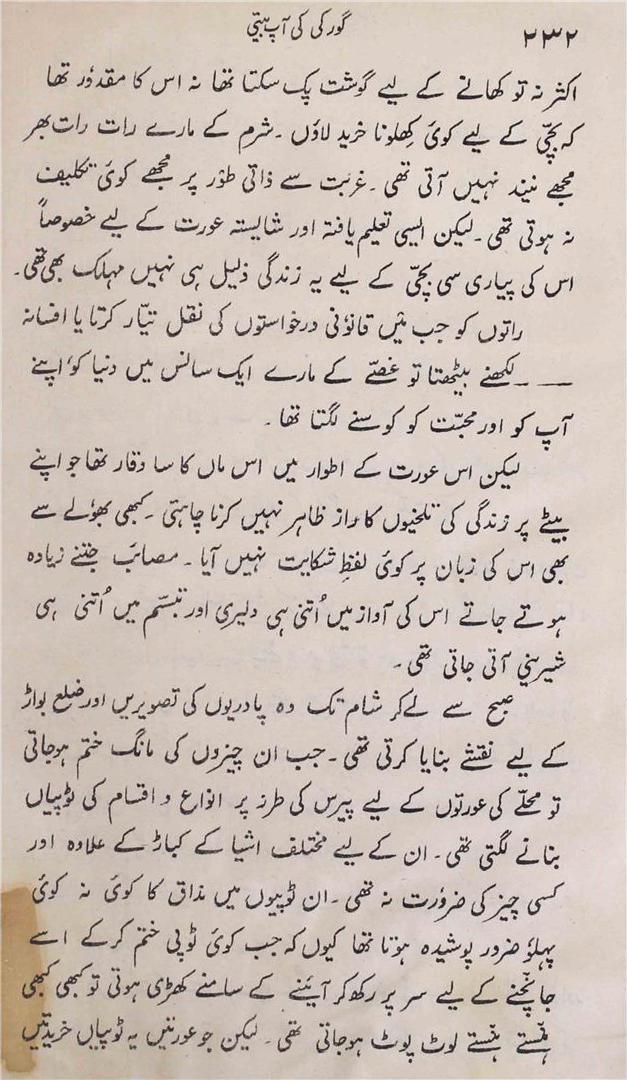 ۲۳۲
گورکی کی آپ بیتی
اکثر نہ تو کھانے کے لیے گوشت پک سکتا تھا نہ اس کا مقدوٗر تھا
کہ بچّی کے لیے کوئی کھلونا خرید لاؤں ۔ شرم کے مارے رات رات بھر
مجھے نیند نہیں آتی تھی ۔ غربت سے ذاتی طوٗر پر مجھے کوئی تکلیف
نہ ہوتی تھی ۔ لیکن ایسی تعلیم یافتہ اور شایستہ عورت کے لیے خصوصاً
اس کی پیاری سی بچّی کے لیے یہ زندگی ذلیل ہی نہیں مہلک بھی تھی۔
راتوں کو جب میٗں قانوٗنی درخواستوں کی نقل تیّار کرتا یا افسانہ
— — ۔ لکھنے بیٹھتا تو غصّے کے مارے ایک سانس میں دنیا کو، اپنے
آپ کو اور محبّت کو کوسنے لگتا تھا ۔
لیکن اس عورت کے اطوار میں اس ماں کا سا وقار تھا جو اپنے
بیٹے پر زندگی کی تلخیوں کا راز ظاہر نہیں کرنا چاہتی ۔ کبھی بھوٗلے سے
بھی اس کی زبان پر کوئی لفظِ شکایت نہیں آیا ۔ مصائب جتنے زیادہ
ہوتے جاتے اس کی آواز میں اُتنی ہی دلیری اور تبسّم میں اُتنی ہی
شیرینی آتی جاتی تھی ۔
صبح سے لے کر شام تک وہ پادریوں کی تصویریں اور ضلع بواڑ
کے لیے نقشے بنایا کرتی تھی ۔ جب ان چیزوں کی مانگ ختم ہوجاتی
تو محلّے کی عورتوں کے لیے پیرس کی طرز پر انواع و اقسام کی ٹوپیاں
بنانے لگتی تھی ۔ ان کے لیے مختلف اشیا کے کباڑ کے علاوہ اور
کسی چیز کی ضرورت نہ تھی ۔ ان ٹوپیوں میں مذاق کا کوئی نہ کوئی
پہلوٗ ضرور پوشیدہ ہوتا تھا کیوں کہ جب کوئی ٹوپی ختم کرکے اسے
جانچنے کے لیے سر پر رکھ کر آئینے کے سامنے کھڑی ہوتی تو کبھی کبھی
ہنستے ہنستے لوٹ پوٹ ہوجاتی تھی ۔ لیکن جو عورتیں یہ ٹوپیاں خریدتیں